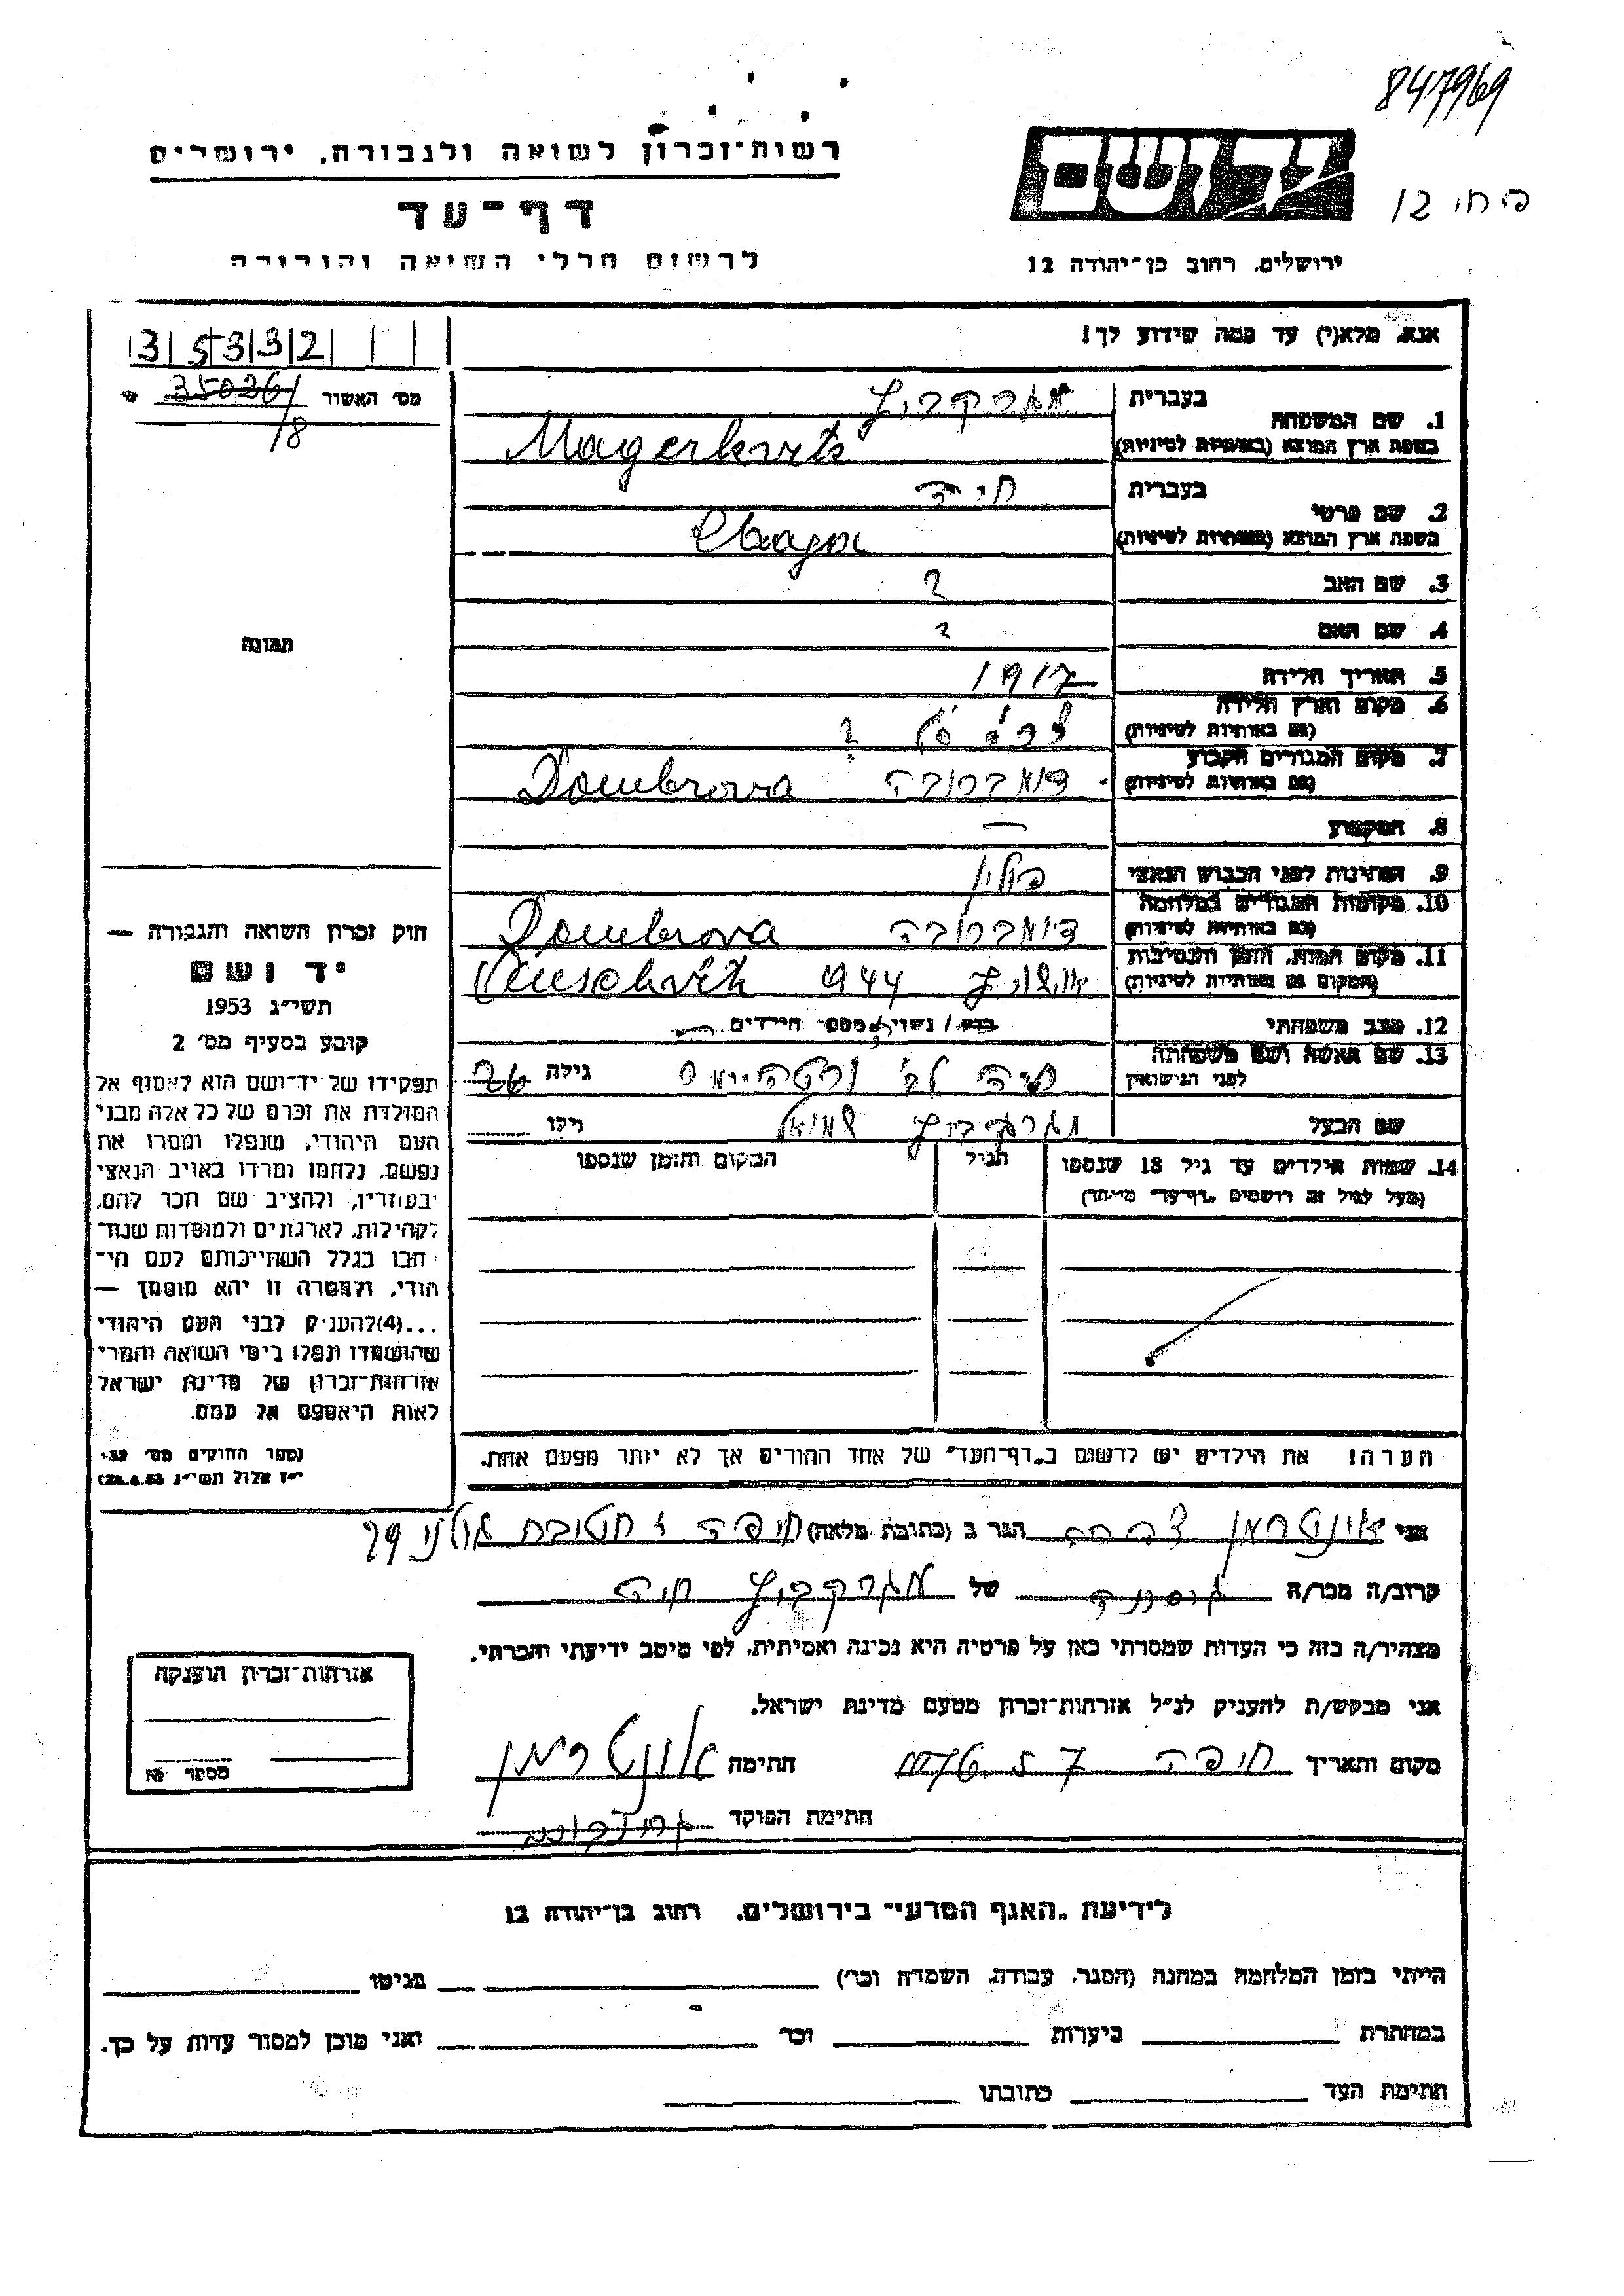 847969
רשות-זכרון לשואה ולגבורה, ירושלים
דף-עד
לרשום חללי השואה והגבורה
יד ושם
12
ירושלים, רחוב בן-יהודה 12
אנא, מלא(י) עד כמה שידוע לך!
35332
מס׳ האשור 35026/
18
1. שם המשפחה
בעברית מגרקביץ
בשפת ארץ המוצא (באותיות לטיניות) Magerkvitz
2. שם פרטי
בעברית חיה
בשפת ארץ המוצא (באותיות לטיניות) Chaya
3. שם האב ?
4. שם האם ?
תמונה
5. תאריך הלידה 1917
6. מקום וארץ הלידה
(גם באותיות לטיניות) ?
7. מקום המגורים הקבוע
(גם באותיות לטיניות) דומברובה Dombrova
8. המקצוע —
9. הנתינות לפני הכבוש הנאצי פולין
10. מקומות המגורים במלחמה
(גם באותיות לטיניות) דומברובה Dombrova
11. מקום המות, הזמן והנסיבות
(המקום גם באותיות לטיניות) אושויץ 1944
12. מצב משפחתי רווק / נשוי / מספר הילדים
13. שם האשה ושם משפחתה
לפני הנישואין חיה לב׳ גילה
שם הבעל מגרקביץ שמואל גילו
14. שמות הילדים עד גיל 18 שנספו הגיל המקום והזמן שנספו
(מעל לגיל זה רושמים „דף-עד״ מיוחד)
הערה! את הילדים יש לרשום ב„דף-העד״ של אחד ההורים אך לא יותר מפעם אחת.
חוק זכרון השואה והגבורה —
יד ושם
תשי״ג 1953
קובע בסעיף מס׳ 2
תפקידו של יד-ושם הוא לאסוף אל
המולדת את זכרם של כל אלה מבני
העם היהודי, שנפלו ומסרו את
נפשם, נלחמו ומרדו באויב הנאצי
ובעוזריו, ולהציב שם וזכר להם,
לקהילות, לארגונים ולמוסדות שנח-
רבו בגלל השתייכותם לעם הי-
הודי, ולמטרה זו יהא מוסמך —
...(4) להעניק לבני העם היהודי
שהושמדו ונפלו בימי השואה והמרי
אזרחות-זכרון של מדינת ישראל
לאות היאספם אל עמם.
(ספר החוקים מס׳ 132,
י״ז אלול תשי״ג 28.8.53)
אני אונטרמן הגר ב (כתובת מלאה) חיפה חטיבת גולני 29
קרוב/ה מכר/ה של מגרקביץ חיה
מצהיר/ה בזה כי העדות שמסרתי כאן על פרטיה היא נכונה ואמיתית, לפי מיטב ידיעתי והכרתי.
אני מבקש/ת להעניק לנ״ל אזרחות-זכרון מטעם מדינת ישראל.
מקום ותאריך חיפה חתימה אונטרמן
חתימת הפוקד
אזרחות-זכרון הוענקה
מספר
לידיעת „האגף המדעי״ בירושלים, רחוב בן-יהודה 12
הייתי בזמן המלחמה במחנה (הסגר, עבודה, השמדה וכו׳) בגיטו
במחתרת ביערות וכו׳ ואני מוכן למסור עדות על כך.
חתימת העד כתובתו